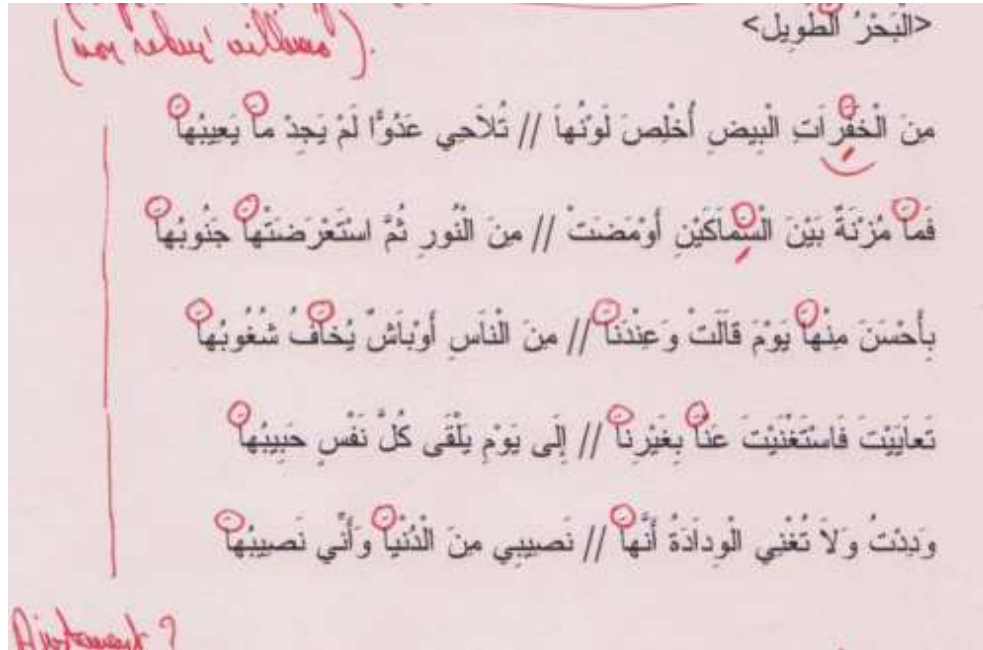 (non relevé ailleurs).
<الْبَحْرُ الْطَوِيل>
مِنَ الْخَفِرَاتِ الْبِيضِ أُخْلِصَ لَوْنُهاَ // تُلاَحِي عَدُوًّا لَمْ يَجِدْ ماَ يَعِيبُهاَ
فَماَ مُزْنَةٌ بَيْنَ الْسِّمَاكَيْنِ أَوْمَضَتْ // مِنَ الْنُورِ ثُمَّ اسْتَعْرَضَتْهاَ جَنُوبُهاَ
بِأَحْسَنَ مِنْهاَ يَوْمَ قَالَتْ وَعِنْدَناَ // مِنَ الْناَسِ أَوْبَاشٌ يُخاَفُ شُغُوبُهاَ
تَعاَيَيْتَ فَاسْتَغْنَيْتَ عَنَّا بِغَيْرِناَ // إِلَى يَوْمِ يَلْقَى كُلَّ نَفْسٍ حَبِيبُهاَ
وَدِدْتُ وَلاَ تُغْنِي الْوِداَدَةُ أَنَّهاَ // نَصِيبِي مِنَ الْدُنْياَ وَأَنِّي نَصِيبُهاَ
Ajustement ?